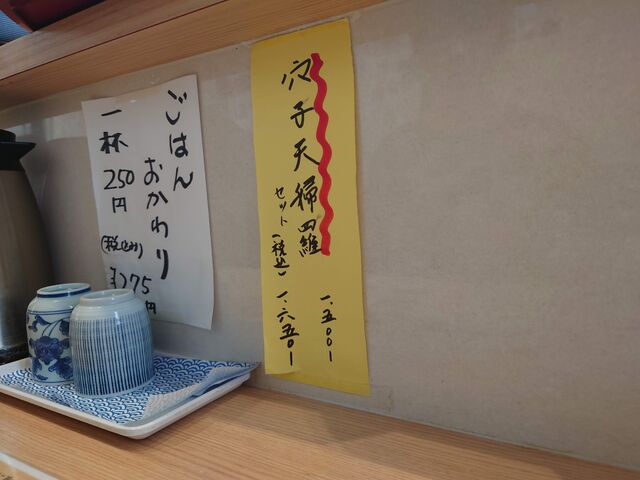 ごはん
おかわり
一杯
250
円
(税込み)
¥275
円
穴子天婦羅
一、五〇〇ー
セット(税込)
一、六五〇ー